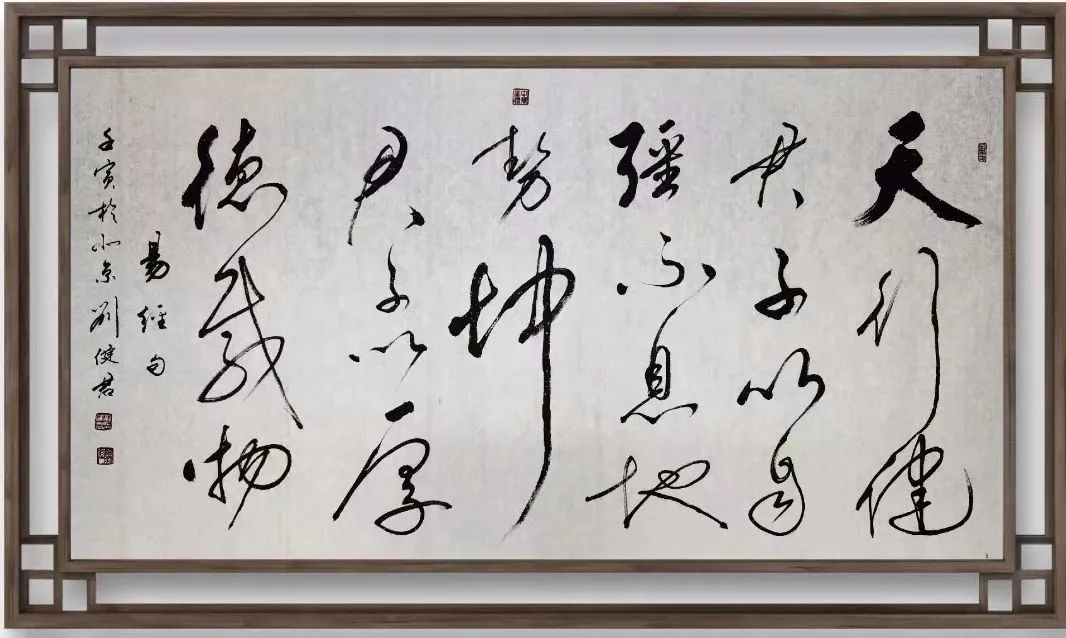 天行健
君子以自
强不息地
势坤
君子以厚
德载物
易经句
壬寅於北京刘健君